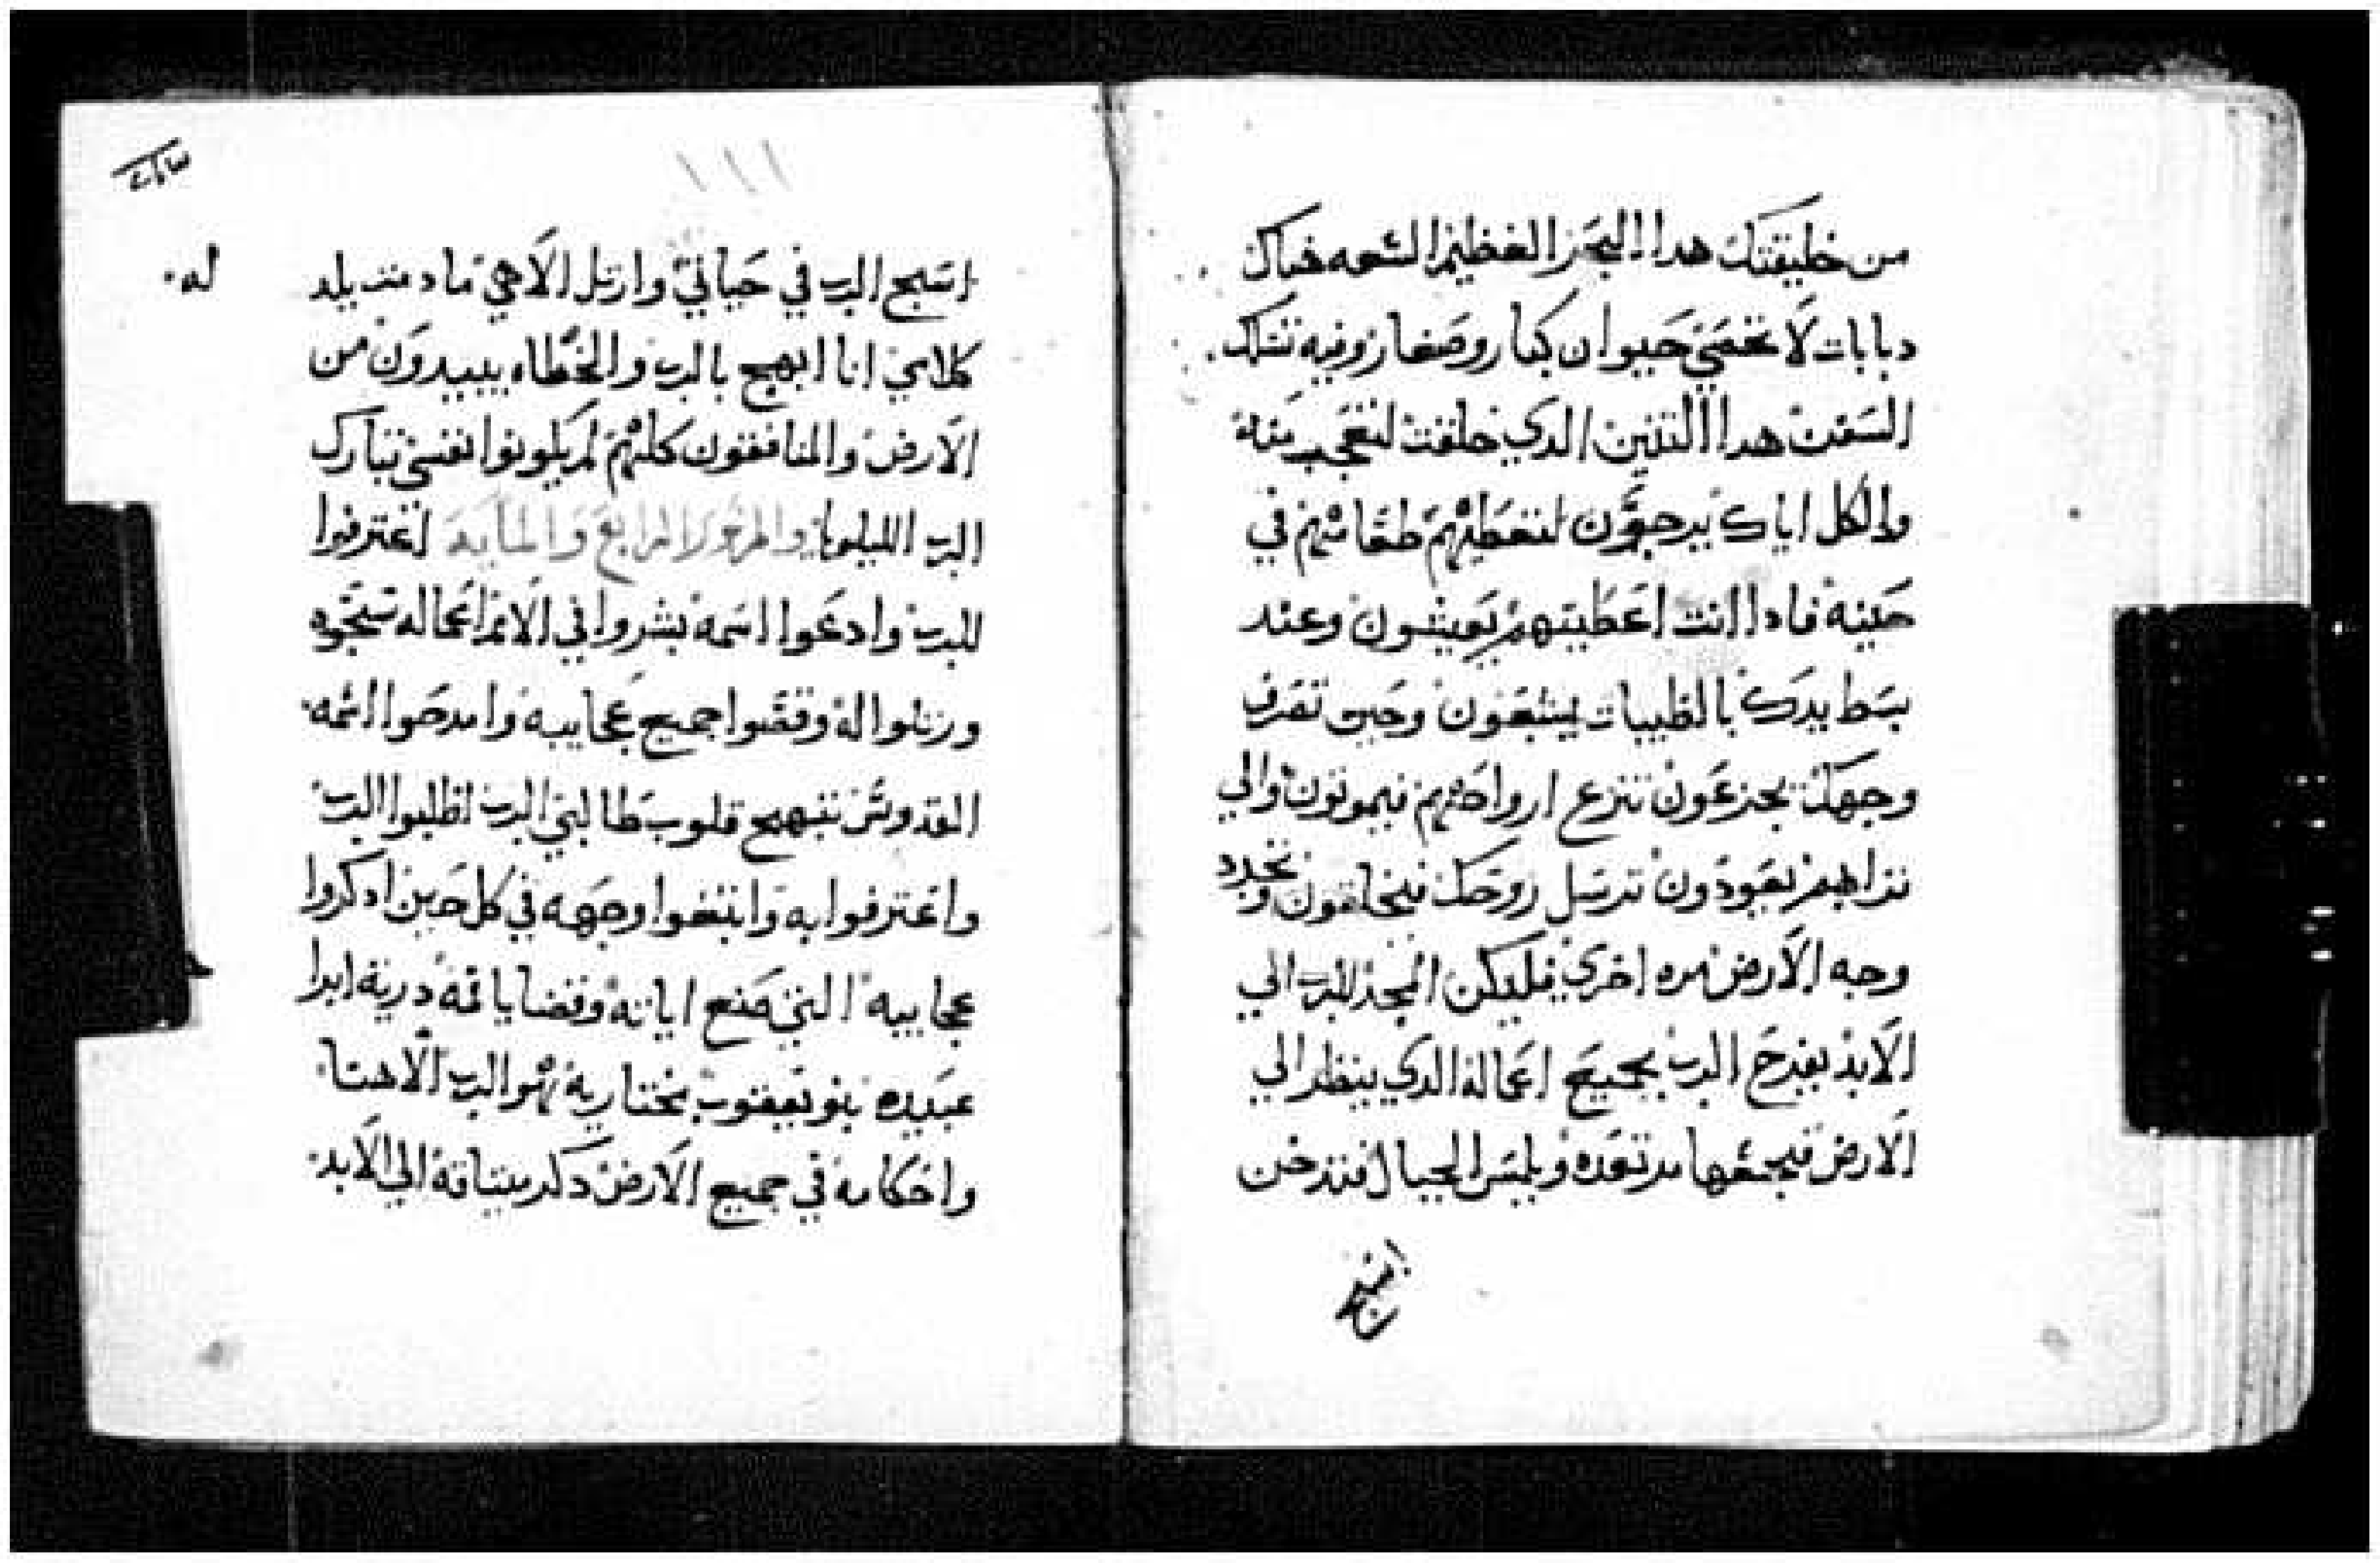 من خليقتك هدا البحر العظيم السعه هناك
دبابات لا تحصي حيوان كبار وصغار وفيه تسلك
السفن هدا التنين الدي خلقت لتعجب منه
والكل اياك يرجون لتعطيهم طعامهم في
حينه فادا انت اعطيتهم يعيشون وعند
بسط يدك بالطيبات يشبعون وحين تصرف
وجهك يجزعون تنزع ارواحهم فيموتون والي
ترابهم يعودون ترسل روحك فيخلقون وتجدد
وجه الارض مره اخري فليكن المجد للرب الي
الابد يفرح الرب بجميع اعماله الدي ينظر الي
الارض فيجعلها مرتعده ويلمس الجبال فتدخن
اسبح
١١١
اسبح الرب في حياتي وارتل لالاهي ما دمت يلد له
كلامي انا ابهج بالرب والخطاه يبيدون من
الارض والمنافقون كانهم لم يكونوا نفسي تبارك
الرب الليلويا والمزمور الرابع والمايه اعترفوا
للرب وادعوا اسمه بشروا في الامم اعماله سبحوه
ورتلوا له وقصوا جميع عجايبه وامدحوا اسمه
القدوس تبتهج قلوب طالبي الرب اطلبوا الرب
واعترفوا به وابتغوا وجهه في كل حين ادكروا
عجايبه التي صنع اياته وقضايا فمه درية ابرا
عبيده بنو يعقوب مختاريه هو الرب الاهنا
واحكامه في جميع الارض دكر ميتاقه الي الابد